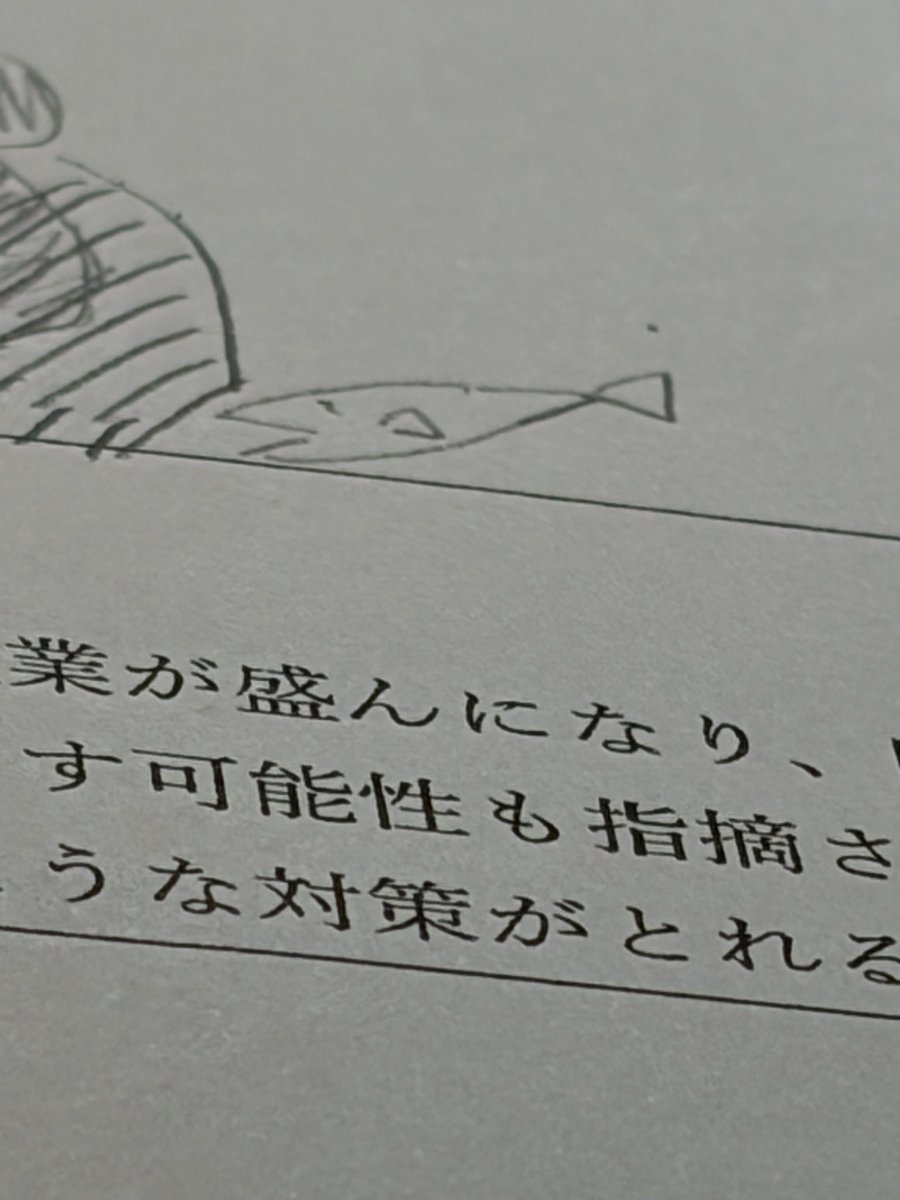 M
業が盛んになり、
す可能性も指摘さ
うな対策がとれる